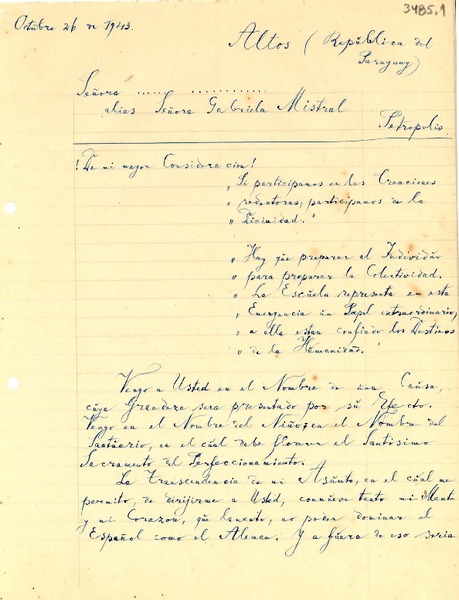 3485.1
Octubre 26 de 1943.
Altos (República del
Paraguay)
Señora ...... ............
alias Señora Gabriela Mistral
Petropolis
¡De mi mejor Consideracion!
„ Si participamos en las Creaciones
„ redentoras, participamos de la
„ Divinidad."
„ Hay que preparar el Individuo
„ para preparar la Colectividad.
„ La Escuela representa en esta
„ Emergencia un Papel extraordinario,
„ a Ella estan confiado los Destinos
„ de la Humanidad."
Vengo a Usted en el Nombre de una Causa,
cuya Grandeza sera presentado por su Efecto.
Vengo en el Nombre del Niño, en el Nombre del
Santuario, en el cúal debe el Santisimo
Sacramento del Perfeccionamiento.
La Transcudencia de mi Asunto, en el cúal me
permito, de dirijirme a Usted, conmueve tanto mi Mente
y mi Corazon, que lamento, no poder dominar el
Español como el Aleman. Y a fuera de eso seria